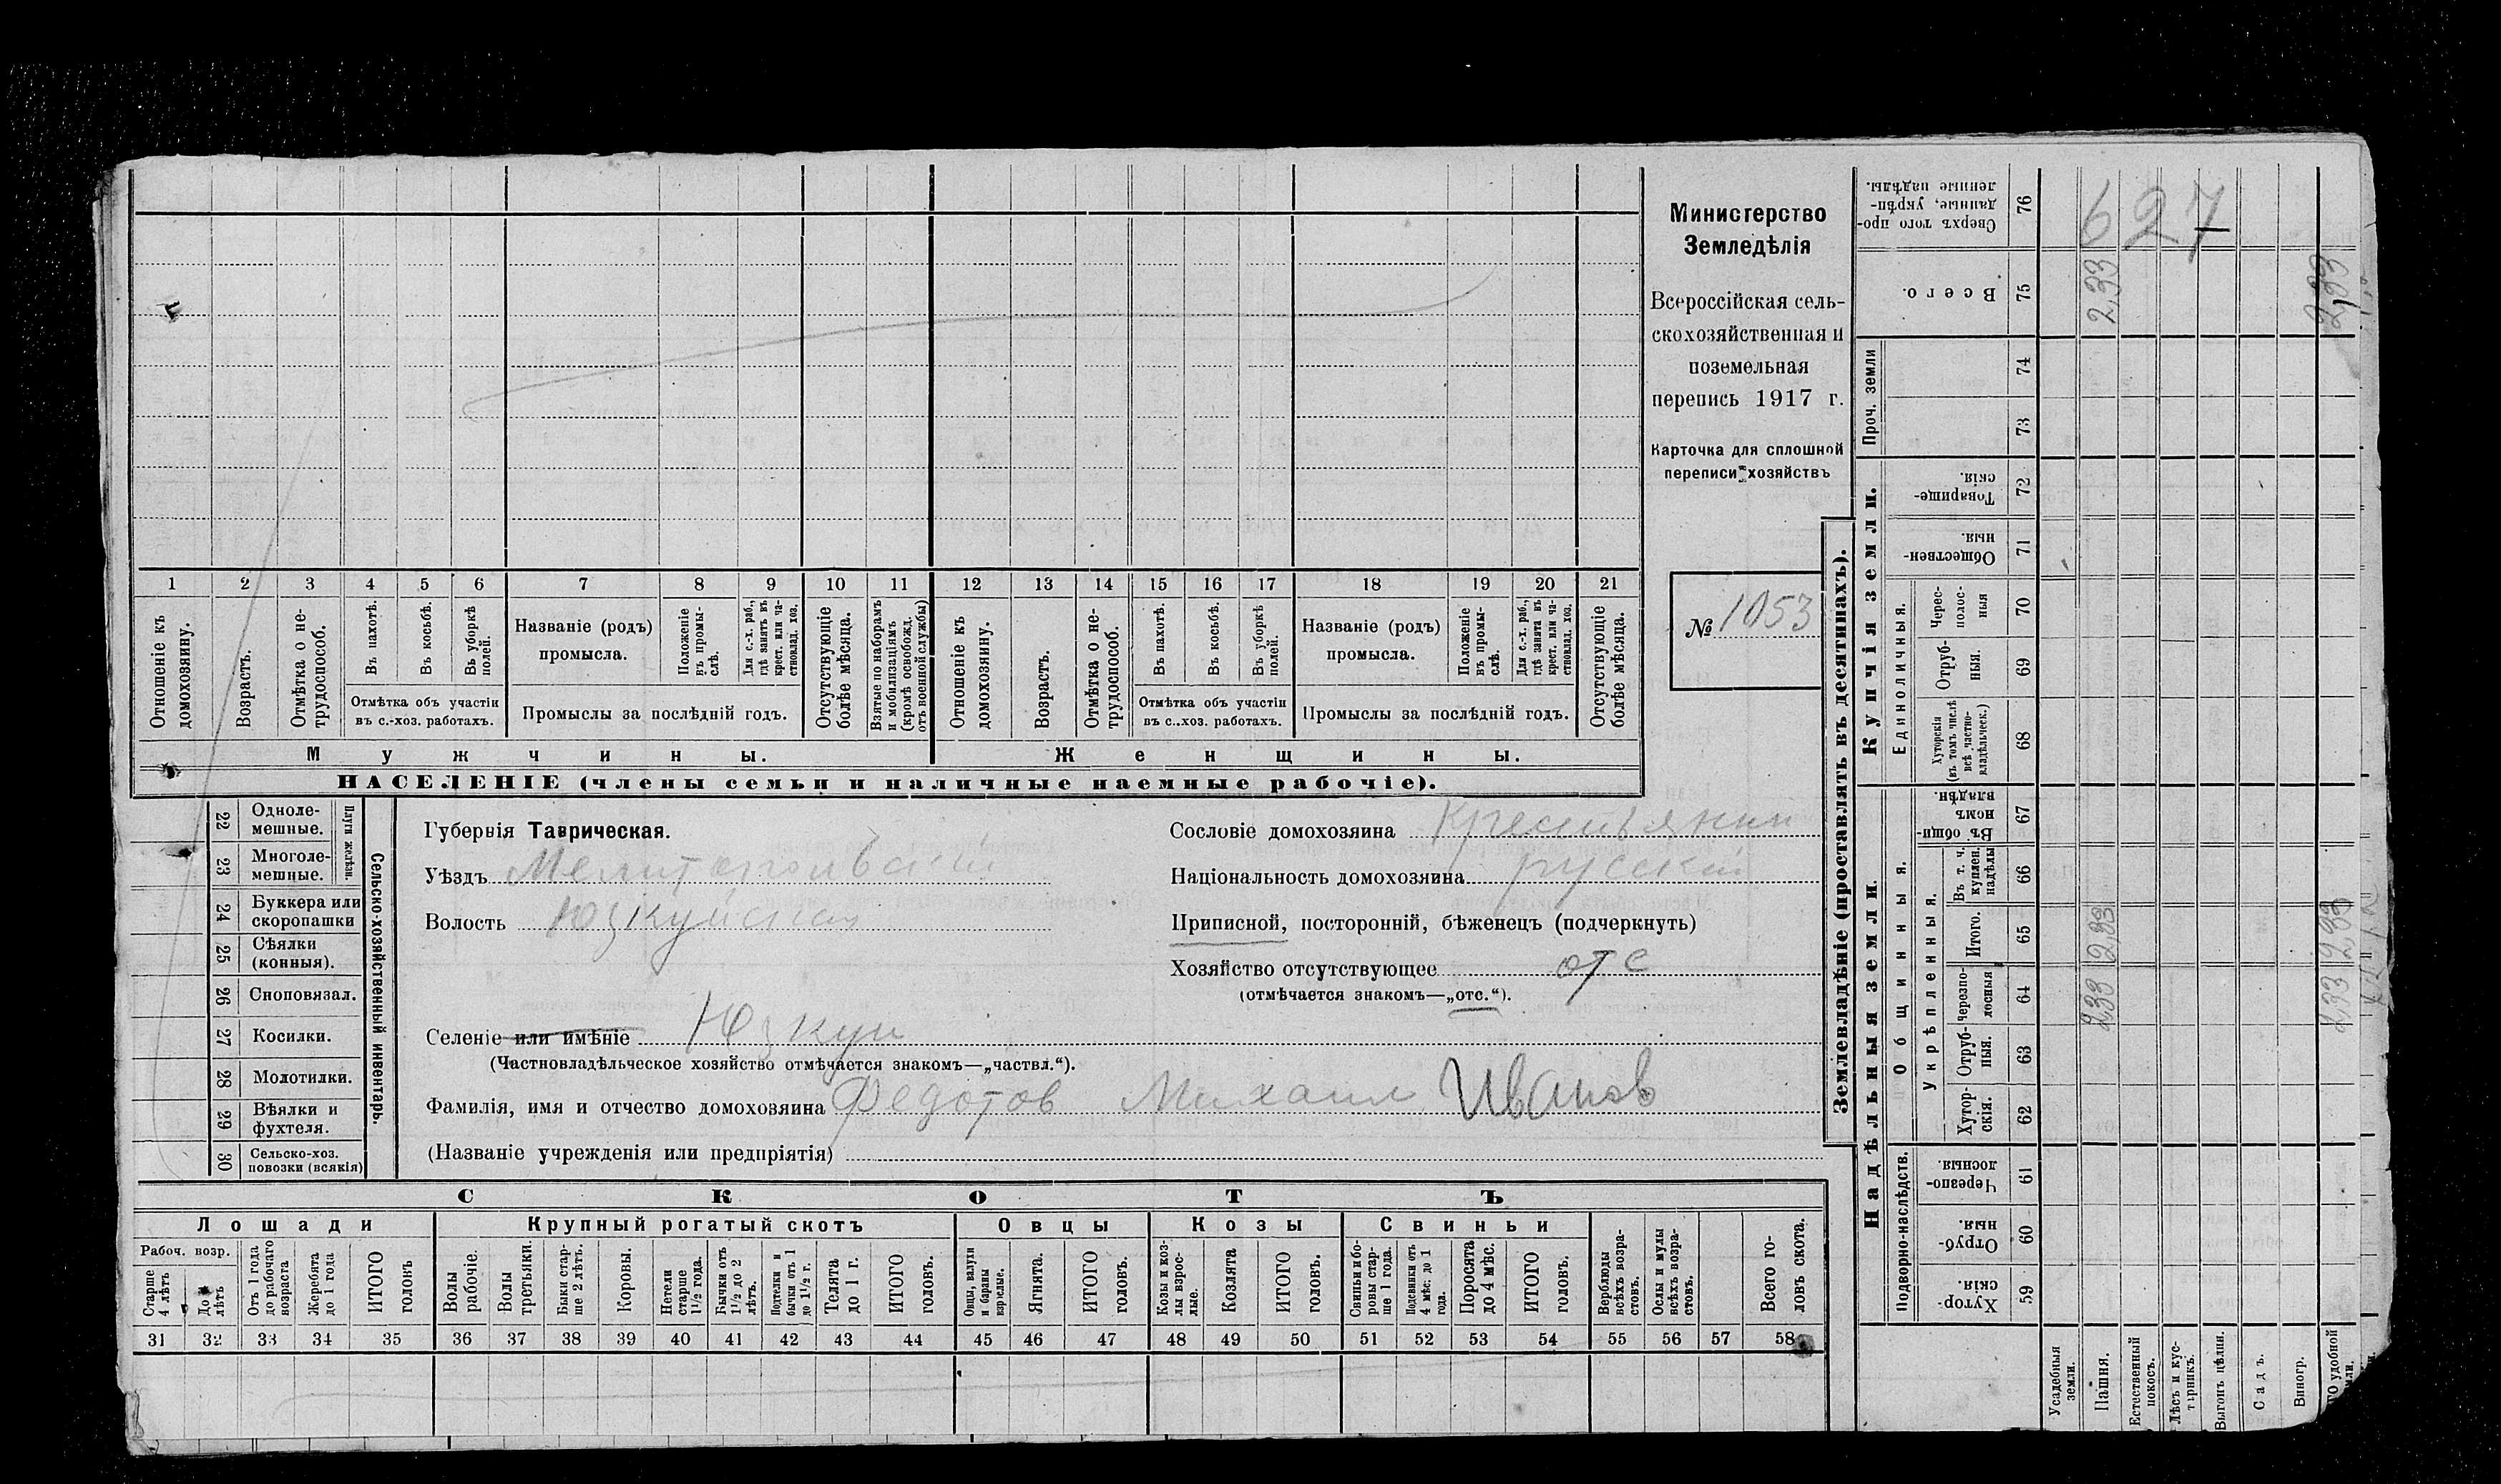 Министерство
Земледѣлія
Всероссійская сель-
скохозяйственная и
поземельная
перепись 1917 г.
Карточка для сплошной
переписи хозяйствъ
№ 1053
1 2 3 4 5 6 7 8 9 10 11 12 13 14 15 16 17 18 19 20 21
Отношеніе къ домохозяину.
Возрастъ.
Отмѣтка о не-трудоспособ.
Въ пахотѣ.
Въ косьбѣ.
Въ уборкѣ полей.
Отмѣтка объ участіи
въ с.-хоз. работахъ.
Названіе (родъ)
промысла.
Положеніе въ промы-слѣ.
Для с.-х. раб., гдѣ занятъ въ крест. или ча-стновлад. хоз.
Промыслы за послѣдній годъ.
Отсутствующіе болѣе мѣсяца.
Взятые по наборамъ и мобилизаціямъ (кромѣ освобожд. отъ военной службы)
Отношеніе къ домохозяину.
Возрастъ.
Отмѣтка о не-трудоспособ.
Въ пахотѣ.
Въ косьбѣ.
Въ уборкѣ полей.
Отмѣтка объ участіи
въ с.-хоз. работахъ.
Названіе (родъ)
промысла.
Положеніе въ промы-слѣ.
Для с.-х. раб., гдѣ занята въ крест. или ча-стновлад. хоз.
Промыслы за послѣдній годъ.
Отсутствующіе болѣе мѣсяца.
Мужчины.
Женщины.
НАСЕЛЕНІЕ (члены семьи и наличные наемные рабочіе).
Сельско-хозяйственный инвентарь.
Плуги желѣзн.
22 Одноле-мешные.
23 Многоле-мешные.
24 Буккера или скоропашки
25 Сѣялки (конныя).
26 Сноповязал.
27 Косилки.
28 Молотилки.
29 Вѣялки и фухтеля.
30 Сельско-хоз. повозки (всякія)
Губернія Таврическая.
Уѣздъ Мелитопольскій
Волость Юзкуйская
Сословіе домохозяина крестьянин
Національность домохозяина русскій
Приписной, посторонній, бѣженецъ (подчеркнуть)
Хозяйство отсутствующее отс
(отмѣчается знакомъ—„отс.“).
Селеніе или имѣніе Юзкуи
(Частновладѣльческое хозяйство отмѣчается знакомъ—„частвл.“).
Фамилія, имя и отчество домохозяина Федотов Михаил Иванов
(Названіе учрежденія или предпріятія)
СКОТЪ
Лошади
Крупный рогатый скотъ
Овцы
Козы
Свиньи
Рабоч. возр.
Старше 4 лѣтъ
До лѣтъ
Отъ 1 года до рабочаго возраста
Жеребята до 1 года
ИТОГО головъ
Волы рабочіе.
Волы третьяки.
Быки стар-ше 2 лѣтъ.
Коровы.
Нетели старше 1½ года.
Бычки отъ 1½ до 2 лѣтъ.
Подтелки и бычки отъ 1 до 1½ г.
Телята до 1 г.
ИТОГО головъ.
Овцы, валухи и бараны взрослые.
Ягнята.
ИТОГО головъ.
Козы и коз-лы взрос-лые.
Козлята
ИТОГО головъ.
Свиньи и бо-ровы стар-ше 1 года.
Подсвинки отъ 4 мѣс. до 1 года.
Поросята до 4 мѣс.
ИТОГО головъ.
Верблюды всѣхъ возра-стовъ.
Ослы и мулы всѣхъ возра-стовъ.
Всего го-ловъ скота.
31 32 33 34 35 36 37 38 39 40 41 42 43 44 45 46 47 48 49 50 51 52 53 54 55 56 57 58
Землевладѣніе (проставлять въ десятинахъ).
Купчія земли.
Надѣльныя земли.
Проч. земли
Единоличныя.
Общинныя.
Укрѣпленныя.
Подворно-наслѣдств.
Сверхъ того про-данные, укрѣп-ленные надѣлы. 76 627
Всего. 75 233 2,33
74
73
Товарище-скія. 72
Обществен-ныя. 71
Черес-полос-ныя 70
Отруб-ныя. 69
Хуторскія (въ томъ числѣ всѣ частно-владѣльческ.) 68
Въ общи-номъ владѣн. 67
Въ т. ч. куплен. надѣлы 66
Итого. 65 2,33 2,33
Черезпо-лосныя 64 233 233
Отруб-ныя. 63
Хутор-скія. 62
Черезпо-лосныя. 61
Отруб-ныя. 60
Хутор-скія. 59
Усадебныя земли.
Пашня.
Естественный покосъ.
Лѣсъ и кус-тарникъ.
Выгонъ цѣлин.
Садъ.
Виногр.
удобной